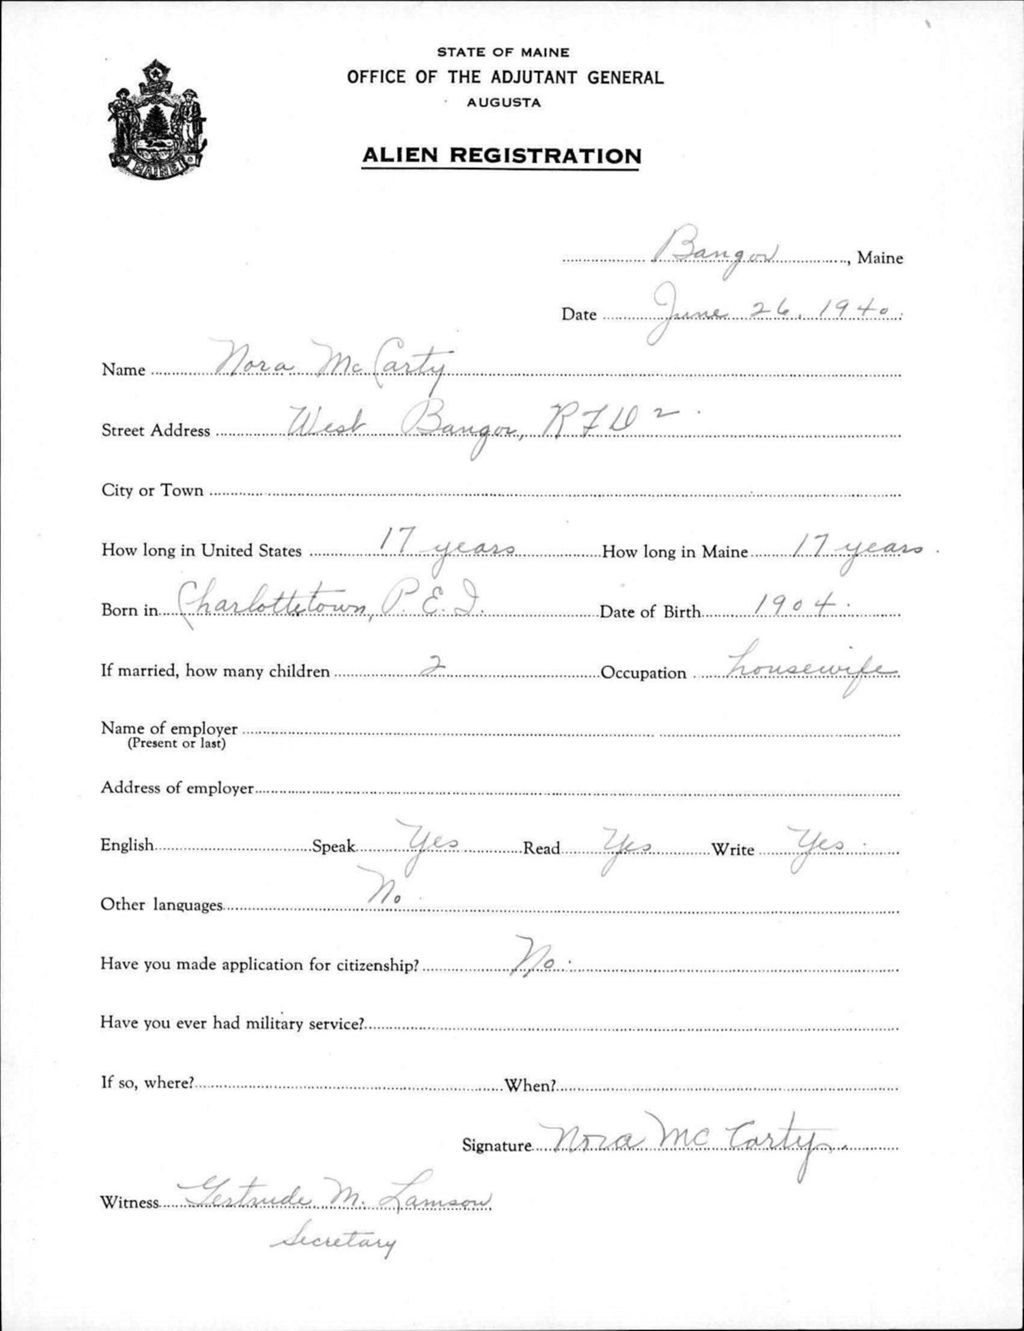 STATE OF MAINE
OFFICE OF THE ADJUTANT GENERAL
AUGUSTA
ALIEN REGISTRATION
MAINE
Bangor, Maine
Date June 26, 1940.
Name Nora McCarty
Street Address West Bangor, RFD 2.
City or Town
How long in United States 17 years How long in Maine 17 years.
Born in Charlottetown, P.E.I. Date of Birth 1904.
If married, how many children 2 Occupation housewife
Name of employer
(Present or last)
Address of employer
English Speak Yes Read Yes Write Yes.
Other languages No.
Have you made application for citizenship? No.
Have you ever had military service?
If so, where? When?
Signature Nora McCarty.
Witness Gertrude M. Lamson
Secretary